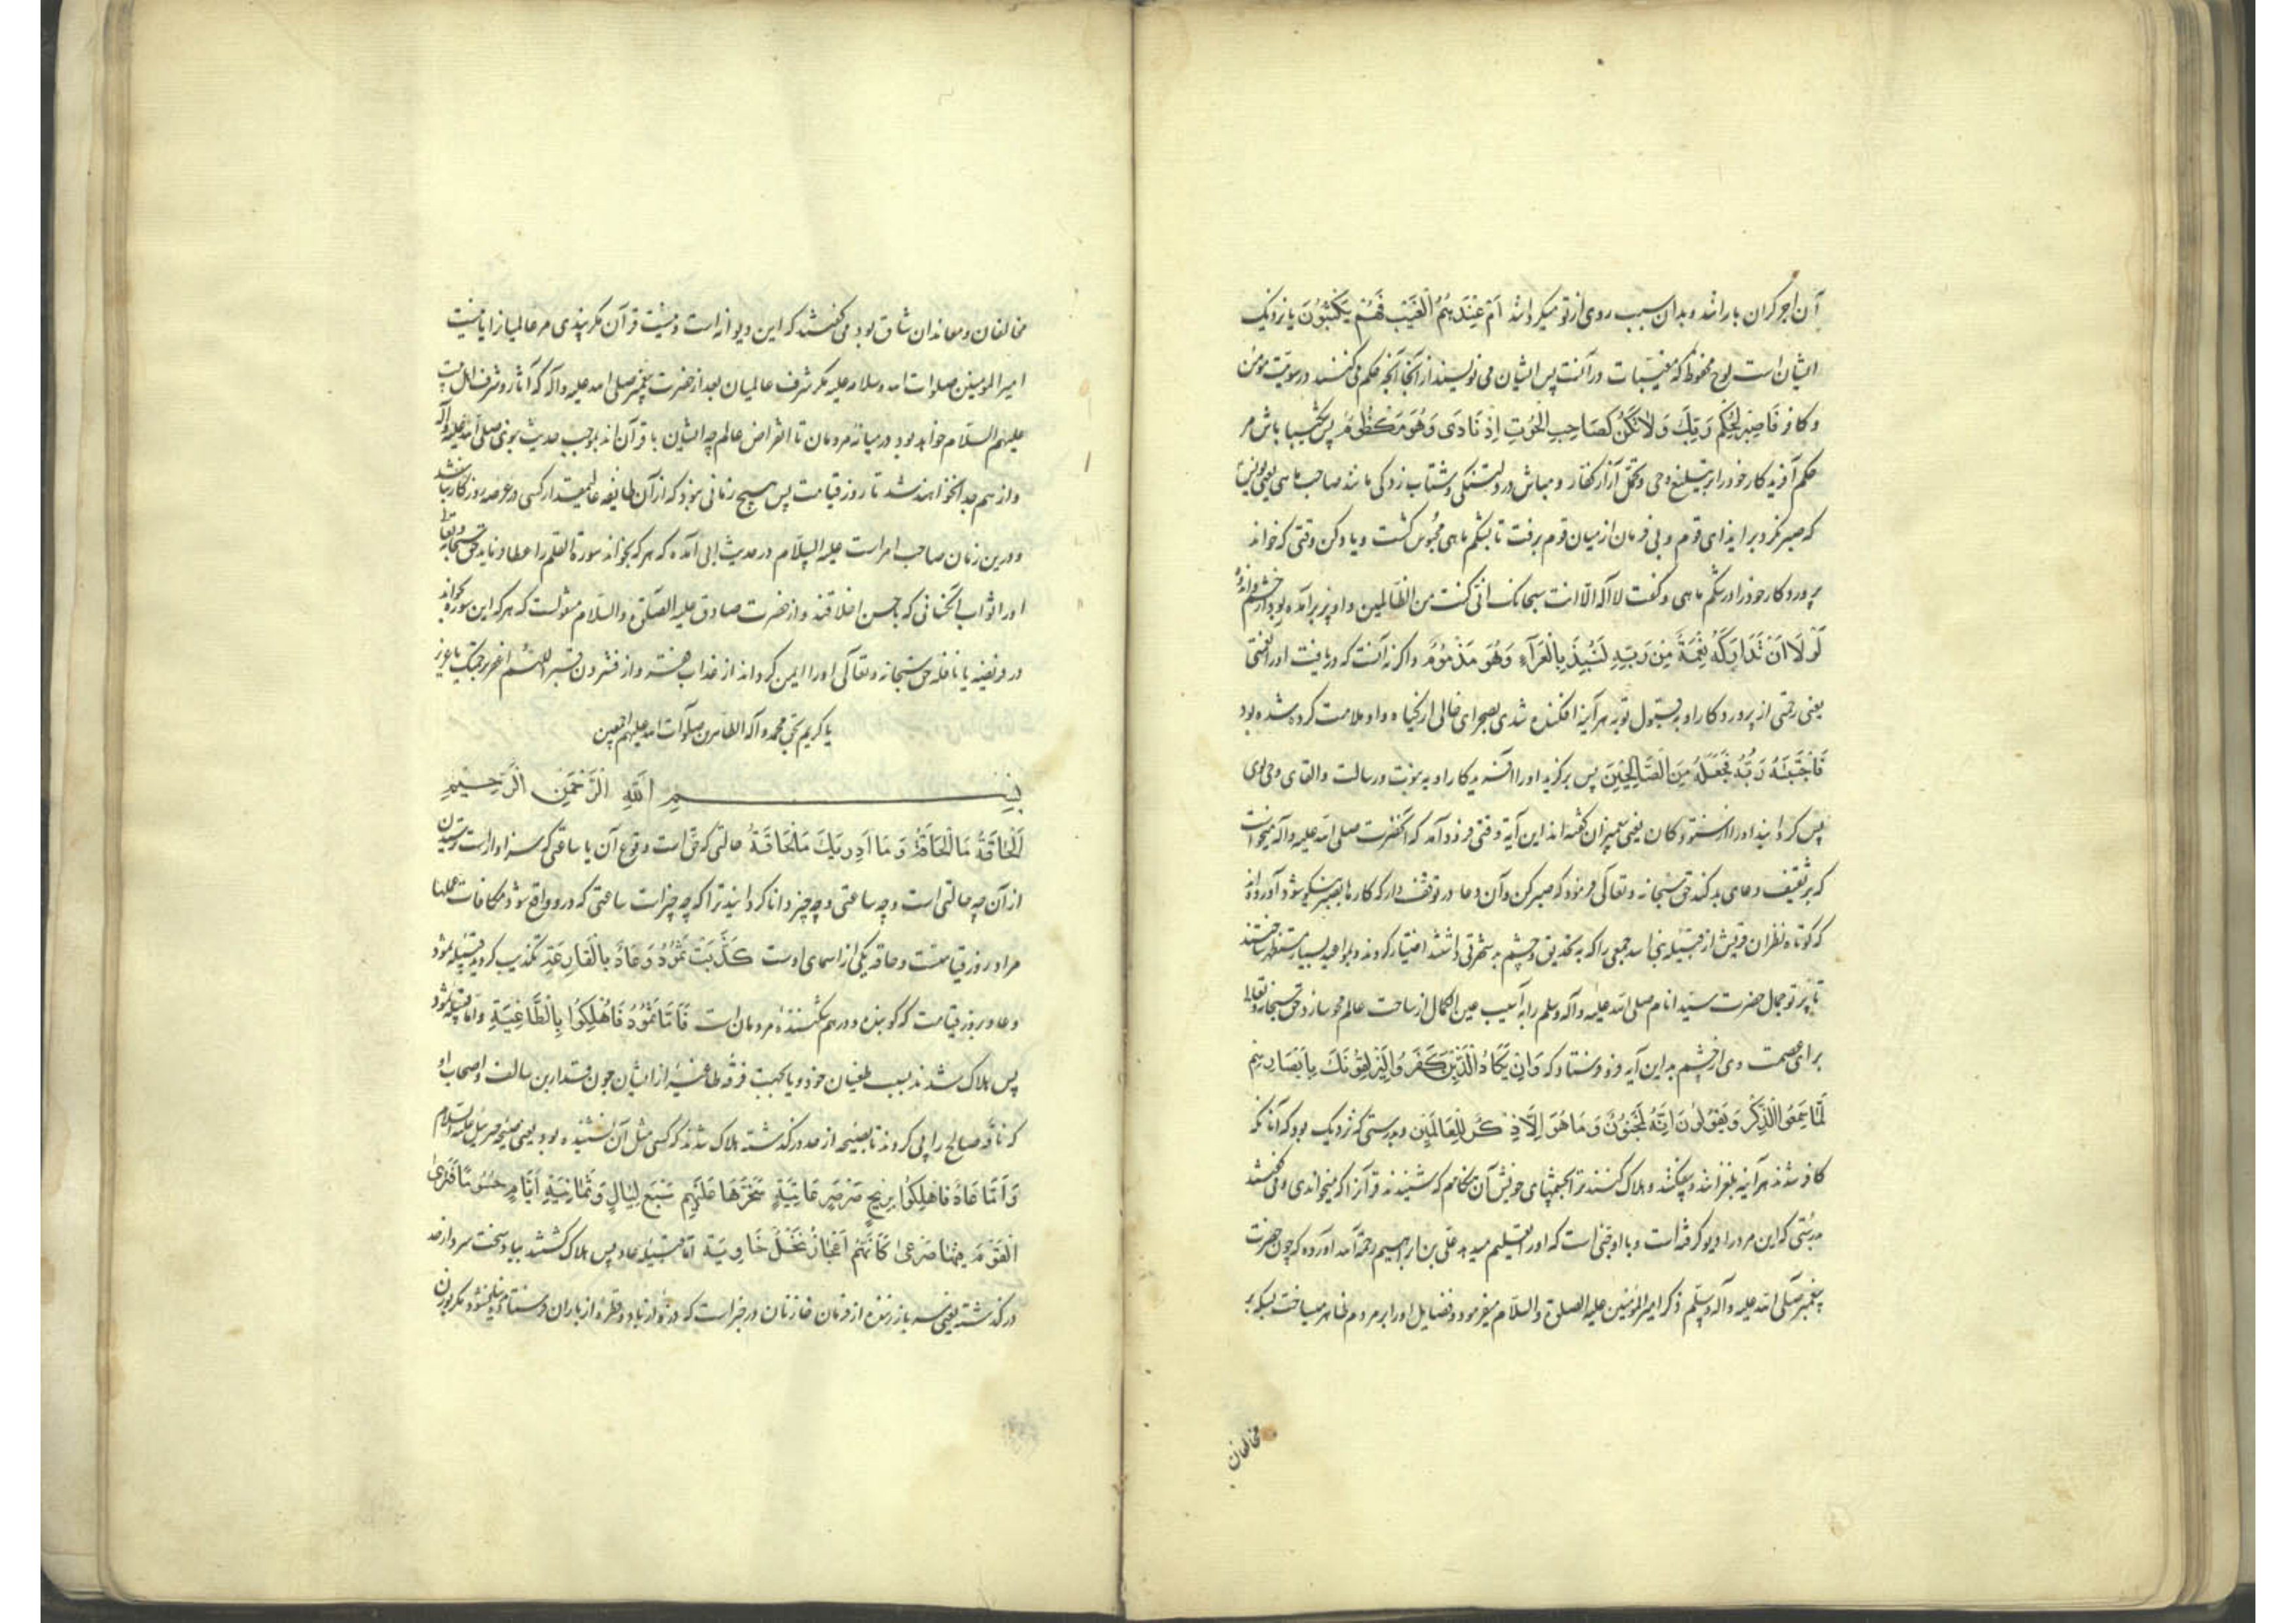 آن اجر گران بارانند و بدان سبب روی از تو میگردانند اَمْ عِنْدَهُمُ الْغَیْبُ فَهُمْ یَکْتُبُونَ یا نزدیک
ایشان است لوح محفوظ که مغیبات در آنست پس ایشان می نویسند از آنجا آنچه حکم می کنند در سویت مؤمن
و کافر فَاصْبِرْ لِحُکْمِ رَبِّكَ وَلَا تَکُنْ کَصَاحِبِ الْحُوتِ اِذْ نَادَی وَهُوَ مَکْظُومٌ پس شکیبا باش مر
حکم آفریدکار خود را بر تبلیغ وحی و تحمل آزار کفار و مباش در دلتنگی و شتاب زدگی مانند صاحب ماهی یعنی یونس
که صبر نکرد بر ایذای قوم و بی فرمان از میان قوم برفت تا بشکم ماهی محبوس گشت و یاد کن وقتی که خواند
پروردکار خود را در شکم ماهی و گفت لا اله الا انت سبحانک انی کنت من الظالمین و او پر برآمده بود از خشم و اندوه
لَوْلَا اَنْ تَدَارَکَهُ نِعْمَةٌ مِنْ رَبِّهِ لَنُبِذَ بِالْعَرَآءِ وَهُوَ مَذْمُومٌ و اگر نه آنست که دریافت او را نعمتی
یعنی رحمتی از پروردکار او به قبول توبه هر آینه افکنده شدی بصحرای خالی از کیاه و او ملامت کرده شده بود
فَاجْتَبَیهُ رَبُّهُ فَجَعَلَهُ مِنَ الصَّالِحِینَ پس برگزید او را آفریدکار او به نبوت و رسالت و القای وحی بوی
پس گردانید او را از ستودکان یعنی پیغمبران گفته اند این آیة وقتی فرود آمد که آنحضرت صلی الله علیه و آله میخواست
که بر ثقیف دعای بد کند حق سبحانه و تعالی فرمود که صبر کن و آن دعا در توقف دار که کارها بصبر نیکو شود آورده اند
که کوتاه نظران قریش از قبیله بنی اسد جمعی را که به تحدیق و چشم بد شهرتی داشتند اختیار کردند و بمواعید بسیار مستظهر ساختند
تا پرتو جمال حضرت سید انام صلی الله علیه و آله وسلم را به آسیب عین الکمال از ساحت عالم محو سازد حق سبحانه و تعالی
برای عصمت وی از چشم بد این آیه فرو فرستاد که وَاِنْ یَکَادُ الَّذِینَ کَفَرُوا لَیُزْلِقُونَكَ بِاَبْصَارِهِمْ
لَمَّا سَمِعُوا الذِّکْرَ وَیَقُولُونَ اِنَّهُ لَمَجْنُونٌ وَمَا هُوَ اِلَّا ذِکْرٌ لِلْعَالَمِینَ و بدرستی که نزدیک بود که آنانکه
کافر شدند هر آینه بلغزانند و بیفکنند و هلاک کنند ترا بچشمهای خویش آن هنگام که شنیدند قرآن را که میخواندی و می گفتند
بدرستی که این مرد را دیو گرفته است و با او جنی است که او را تعلیم میدهد علی بن ابراهیم رحمة الله آورده که چون حضرت
پیغمبر صلی الله علیه وآله وسلم ذکر امیر المؤمنین علیه الصلوة والسلام میفرمود و فضایل او را بر مردم ظاهر میساخت بسکه بر
مخالفان
مخالفان و معاندان شاق بود می گفتند که این دیوانه است و نیست قرآن مگر پندی مر عالمیان را یا نیست
امیر المؤمنین صلوات الله وسلامه علیه مگر شرف عالمیان بعد از حضرت پیغمبر صلی الله علیه وآله که آثار و شرف اهل بیت
علیهم السلام خواهد بود در میانه مردمان تا انقراض عالم چه ایشان با قرآن اند بموجب حدیث نبوی صلی الله علیه وآله
و از هم جدا نخواهند شد تا روز قیامت پس هیچ زمانی نبود که از آن طایفه عالیمقدار کسی در عرصه روزکار نباشد
و درین زمان صاحب امر است علیه السلام در حدیث ابی آمده که هر که بخواند سورة القلم را عطا فرماید حق سبحانه و تعالی
او را ثواب آنکسانی که با حسن اخلاقند و از حضرت صادق علیه الصلوة والسلام منقولست که هر که این سوره بخواند
در فریضه یا نافله حق سبحانه و تعالی او را ایمن گرداند از عذاب و از فشردن قبر اللهم اغفر برحمتک یا عزیز
یا کریم بحق محمد وآله الطاهرین صلوات الله علیهم اجمعین
بِسْمِ اللّٰهِ الرَّحْمٰنِ الرَّحِیمِ
اَلْحَاقَّةُ مَا الْحَاقَّةُ وَمَا اَدْرٰیكَ مَا الْحَاقَّةُ حالتی که حق است وقوع آن یا ساعتی که سزاوار است ترسیدن
از آن چه حالتی است و چه ساعتی و چه چیز دانا گردانید ترا که چه چیز است ساعتی که درو واقع شود مکافات عملها
مراد روز قیامتست و حاقه یکی از اسمای اوست کَذَّبَتْ ثَمُودُ وَعَادٌ بِالْقَارِعَةِ تکذیب کردند قبیله ثمود
و عاد بروز قیامت که کوبنده و درهم شکننده مردمان است فَاَمَّا ثَمُودُ فَاُهْلِکُوا بِالطَّاغِیَةِ و اما قبیله ثمود
پس هلاک شدند بسبب طغیان خود و یا بجهت فرقه طاغیه از ایشان چون قدار بن سالف و اصحاب او
که ناقه صالح را پی کردند تا بصیحه از حد درگذشته هلاک شدند که کسی مثل آن نشنیده بود یعنی صیحه جبرئیل علیه السلام
وَاَمَّا عَادٌ فَاُهْلِکُوا بِرِیحٍ صَرْصَرٍ عَاتِیَةٍ سَخَّرَهَا عَلَیْهِمْ سَبْعَ لَیَالٍ وَثَمَانِیَةَ اَیَّامٍ حُسُومًا فَتَرَی
الْقَوْمَ فِیهَا صَرْعٰی کَاَنَّهُمْ اَعْجَازُ نَخْلٍ خَاوِیَةٍ اما قبیله عاد پس هلاک گشتند بباد سخت سرد از حد
درگذشته یعنی از فرمان خازنان در خبر است که و قطره از باران فرستاده نمیشود مگر بوزن